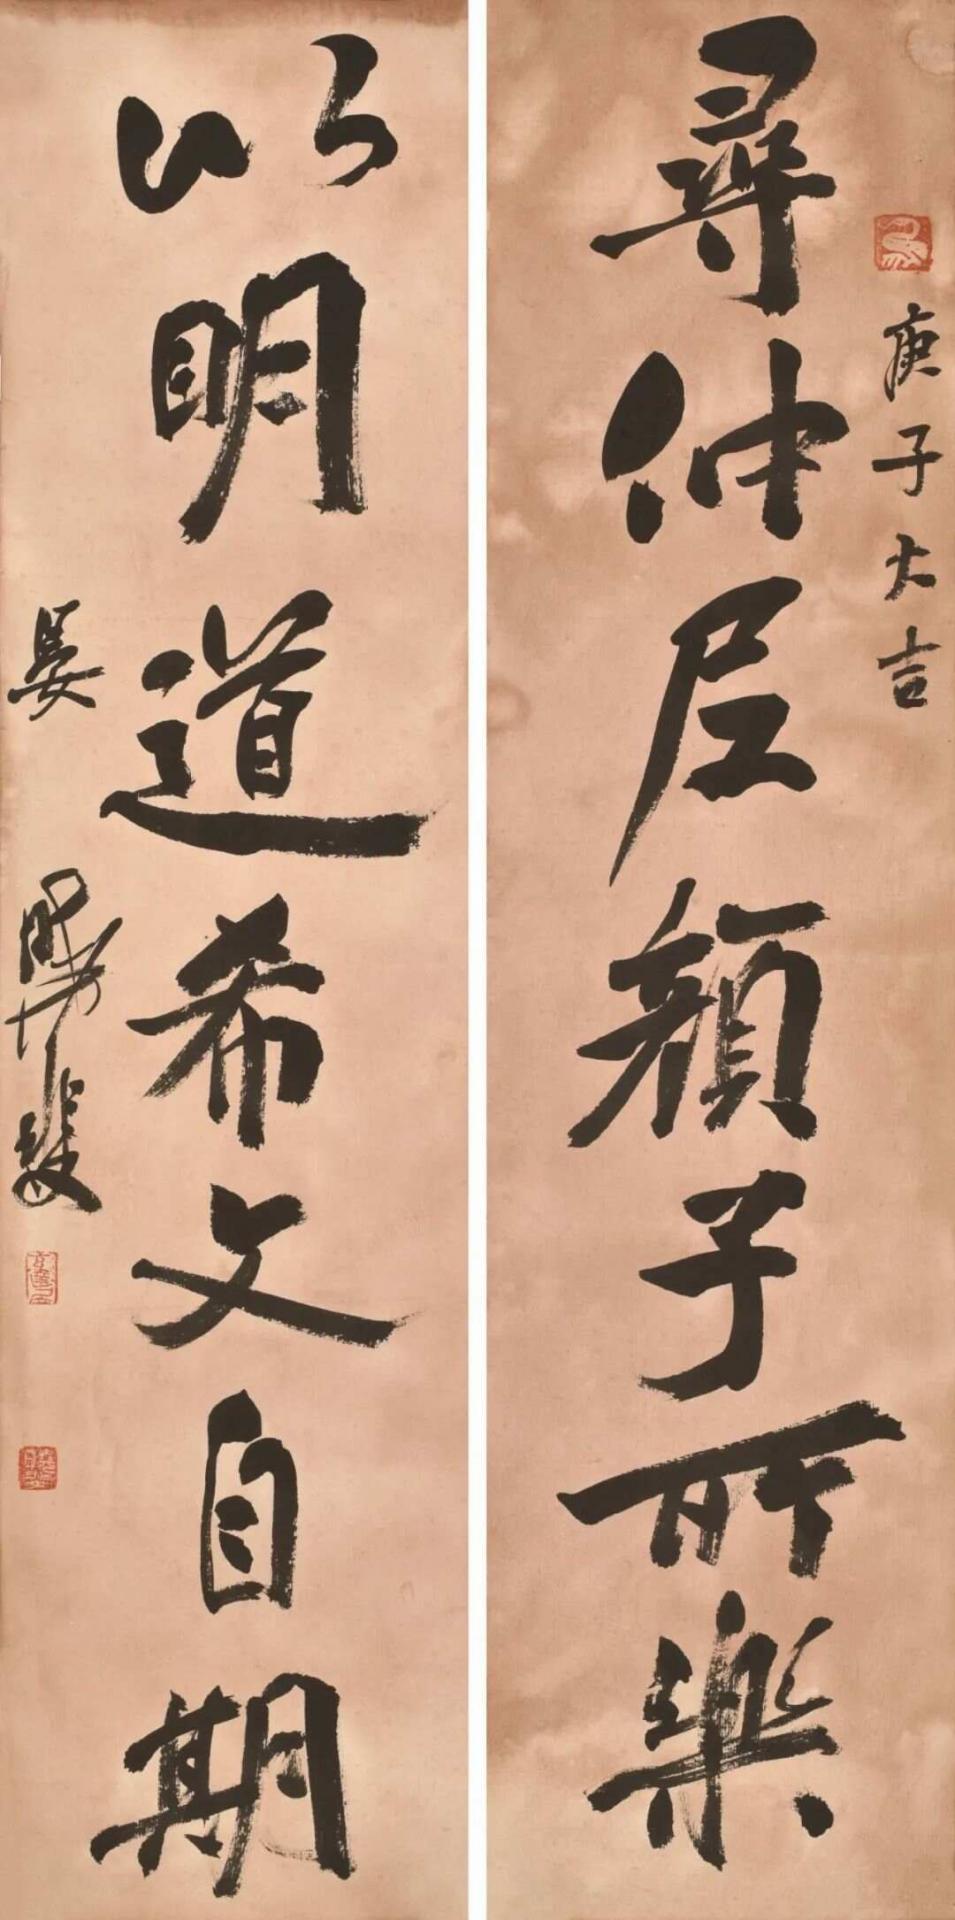 庚子大吉
尋仲尼顏子所樂
以明道希文自期
晏